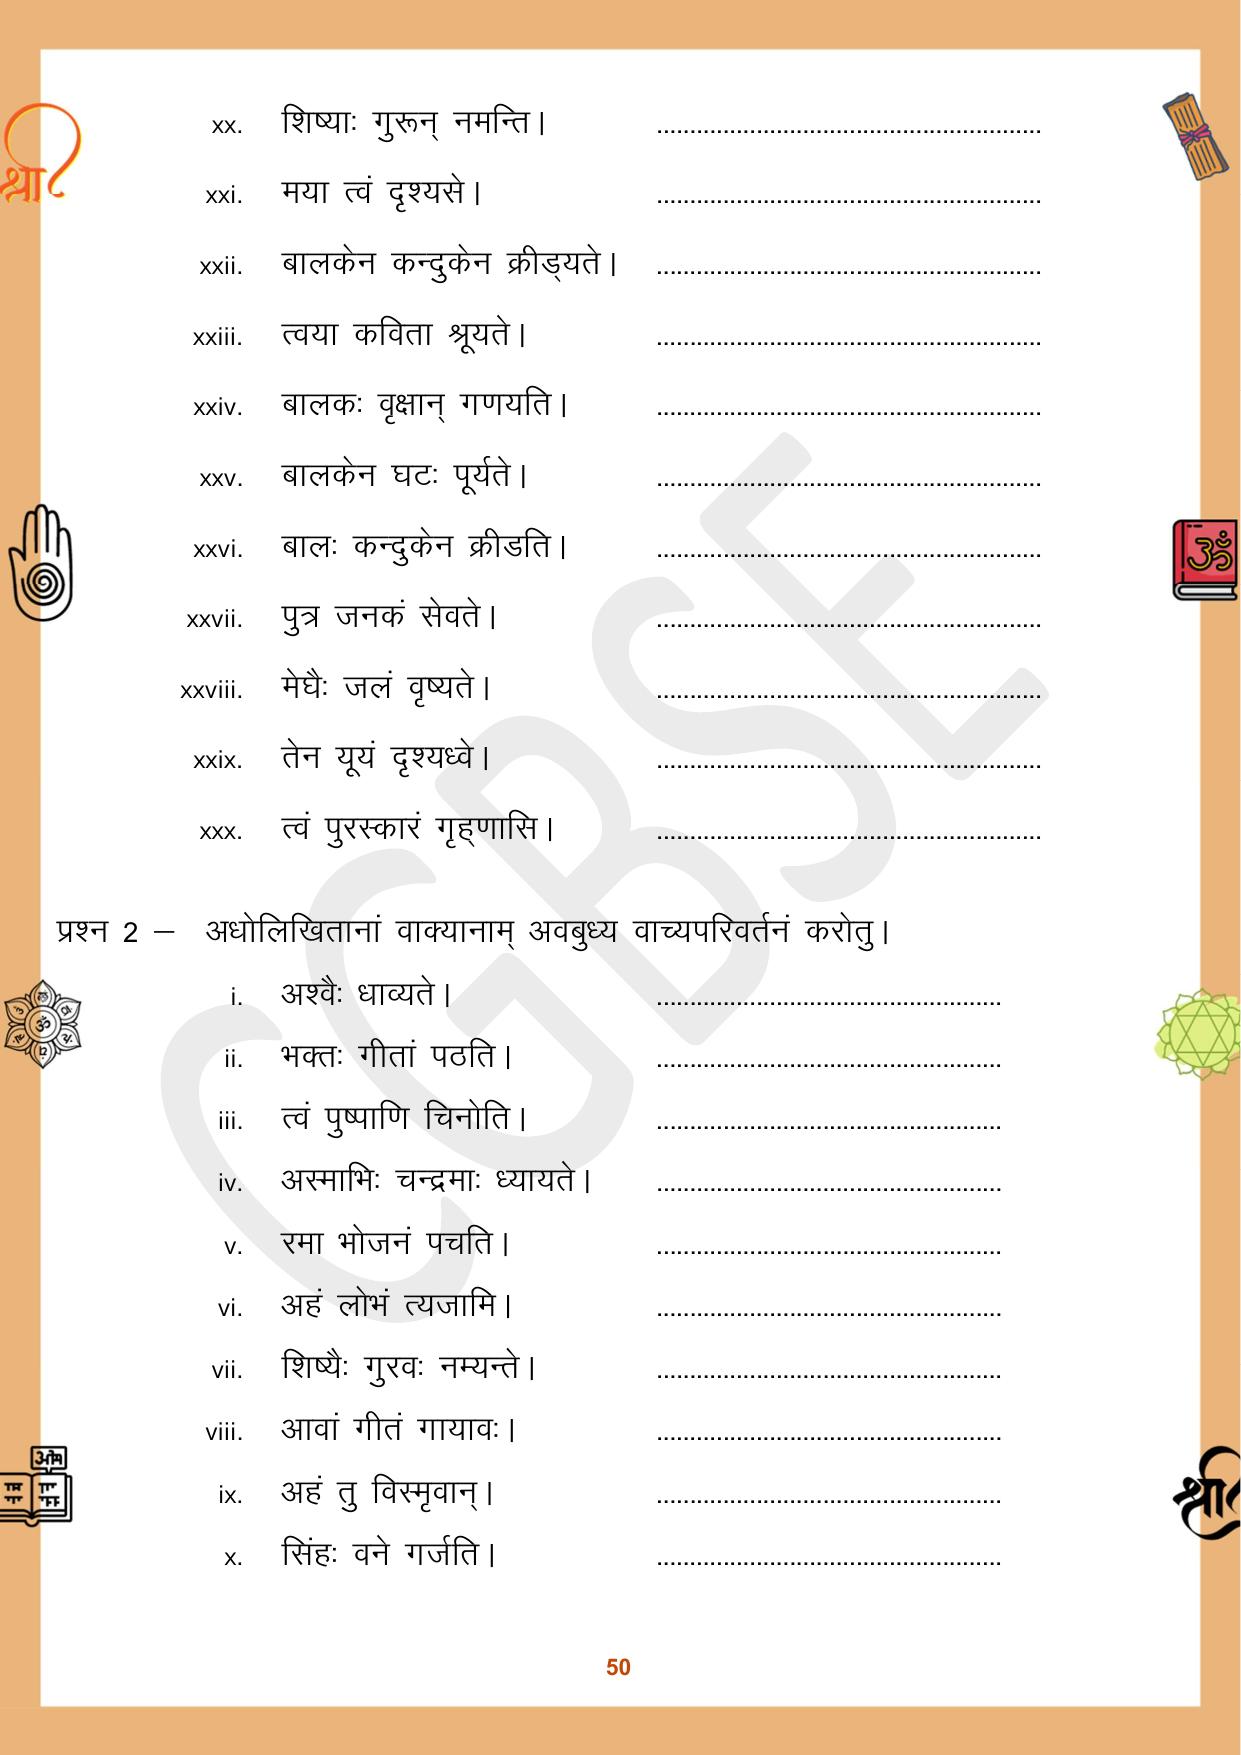 xx. शिष्याः गुरून् नमन्ति। ..........................................................
xxi. मया त्वं दृश्यसे। ..........................................................
xxii. बालकेन कन्दुकेन क्रीड्यते। ..........................................................
xxiii. त्वया कविता श्रूयते। ..........................................................
xxiv. बालकः वृक्षान् गणयति। ..........................................................
xxv. बालकेन घटः पूर्यते। ..........................................................
xxvi. बालः कन्दुकेन क्रीडति। ..........................................................
xxvii. पुत्र जनकं सेवते। ..........................................................
xxviii. मेघैः जलं वृष्यते। ..........................................................
xxix. तेन यूयं दृश्यध्वे। ..........................................................
xxx. त्वं पुरस्कारं गृह्णासि। ..........................................................
प्रश्न 2 – अधोलिखितानां वाक्यानाम् अवबुध्य वाच्यपरिवर्तनं करोतु।
i. अश्वैः धाव्यते। ....................................................
ii. भक्तः गीतां पठति। ....................................................
iii. त्वं पुष्पाणि चिनोति। ....................................................
iv. अस्माभिः चन्द्रमाः ध्यायते। ....................................................
v. रमा भोजनं पचति। ....................................................
vi. अहं लोभं त्यजामि। ....................................................
vii. शिष्यैः गुरवः नम्यन्ते। ....................................................
viii. आवां गीतं गायावः। ....................................................
ix. अहं तु विस्मृवान्। ....................................................
x. सिंहः वने गर्जति। ....................................................
50
CGBSE
श्री
ॐ
ओम
श्री